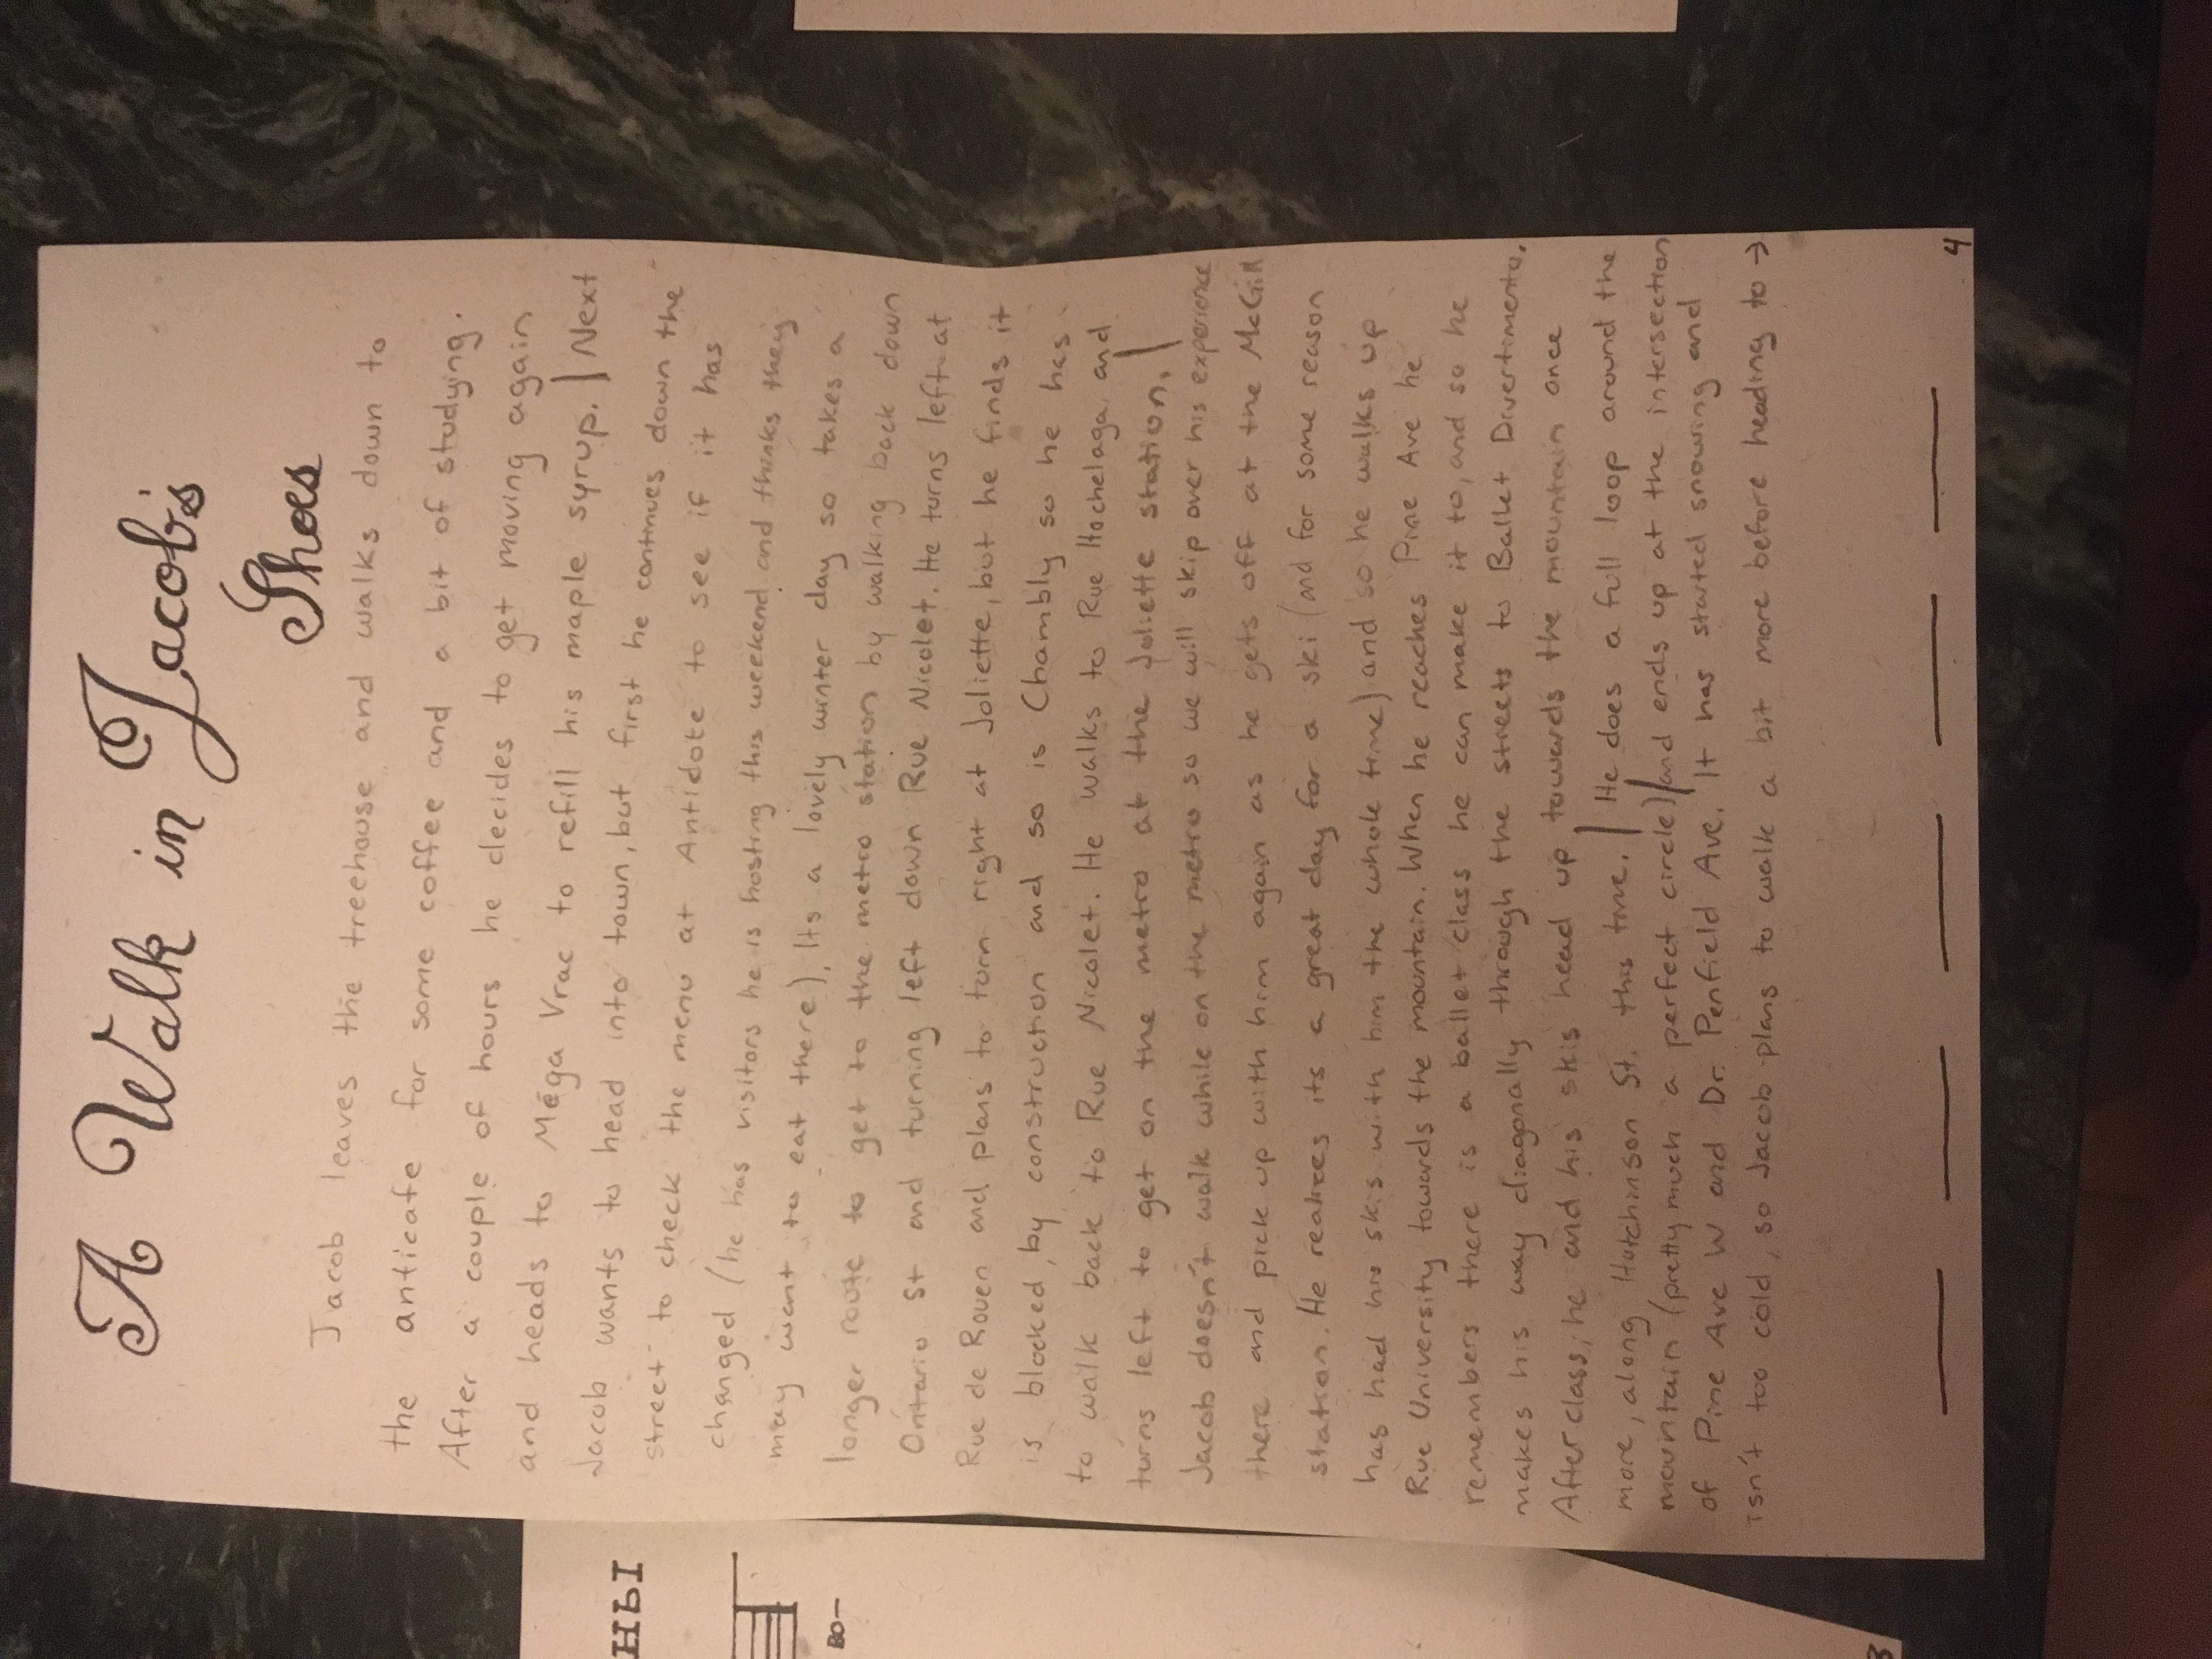 A Walk in Jacob's
Shoes
Jacob leaves the treehouse and walks down to
the anticafe for some coffee and a bit of studying.
After a couple of hours he decides to get moving again
and heads to Méga Vrac to refill his maple syrup. | Next
Jacob wants to head into town, but first he continues down the
street to check the menu at Antidote to see if it has
changed (he has visitors he is hosting this weekend and thinks they
may want to eat there). Its a lovely winter day so takes a
longer route to get to the metro station by walking back down
Ontario St and turning left down Rue Nicolet. He turns left at
Rue de Rouen and plans to turn right at Joliette, but he finds it
is blocked by construction and so is Chambly so he has
to walk back to Rue Nicolet. He walks to Rue Hochelaga and
turns left to get on the metro at the Joliette station. |
Jacob doesn't walk while on the metro so we will skip over his experience
there and pick up with him again as he gets off at the McGill
station. He realizes its a great day for a ski (and for some reason
has had his skis with him the whole time) and so he walks up
Rue University towards the mountain. When he reaches Pine Ave he
remembers there is a ballet class he can make it to, and so he
makes his way diagonally through the streets to Ballet Divertimento.
After class, he and his skis head up towards the mountain once
more, along Hutchinson St. this time. | He does a full loop around the
mountain (pretty much a perfect circle) | and ends up at the intersection
of Pine Ave W and Dr. Penfield Ave. It has started snowing and
isn't too cold, so Jacob plans to walk a bit more before heading to →
4
НЫ
во-
3